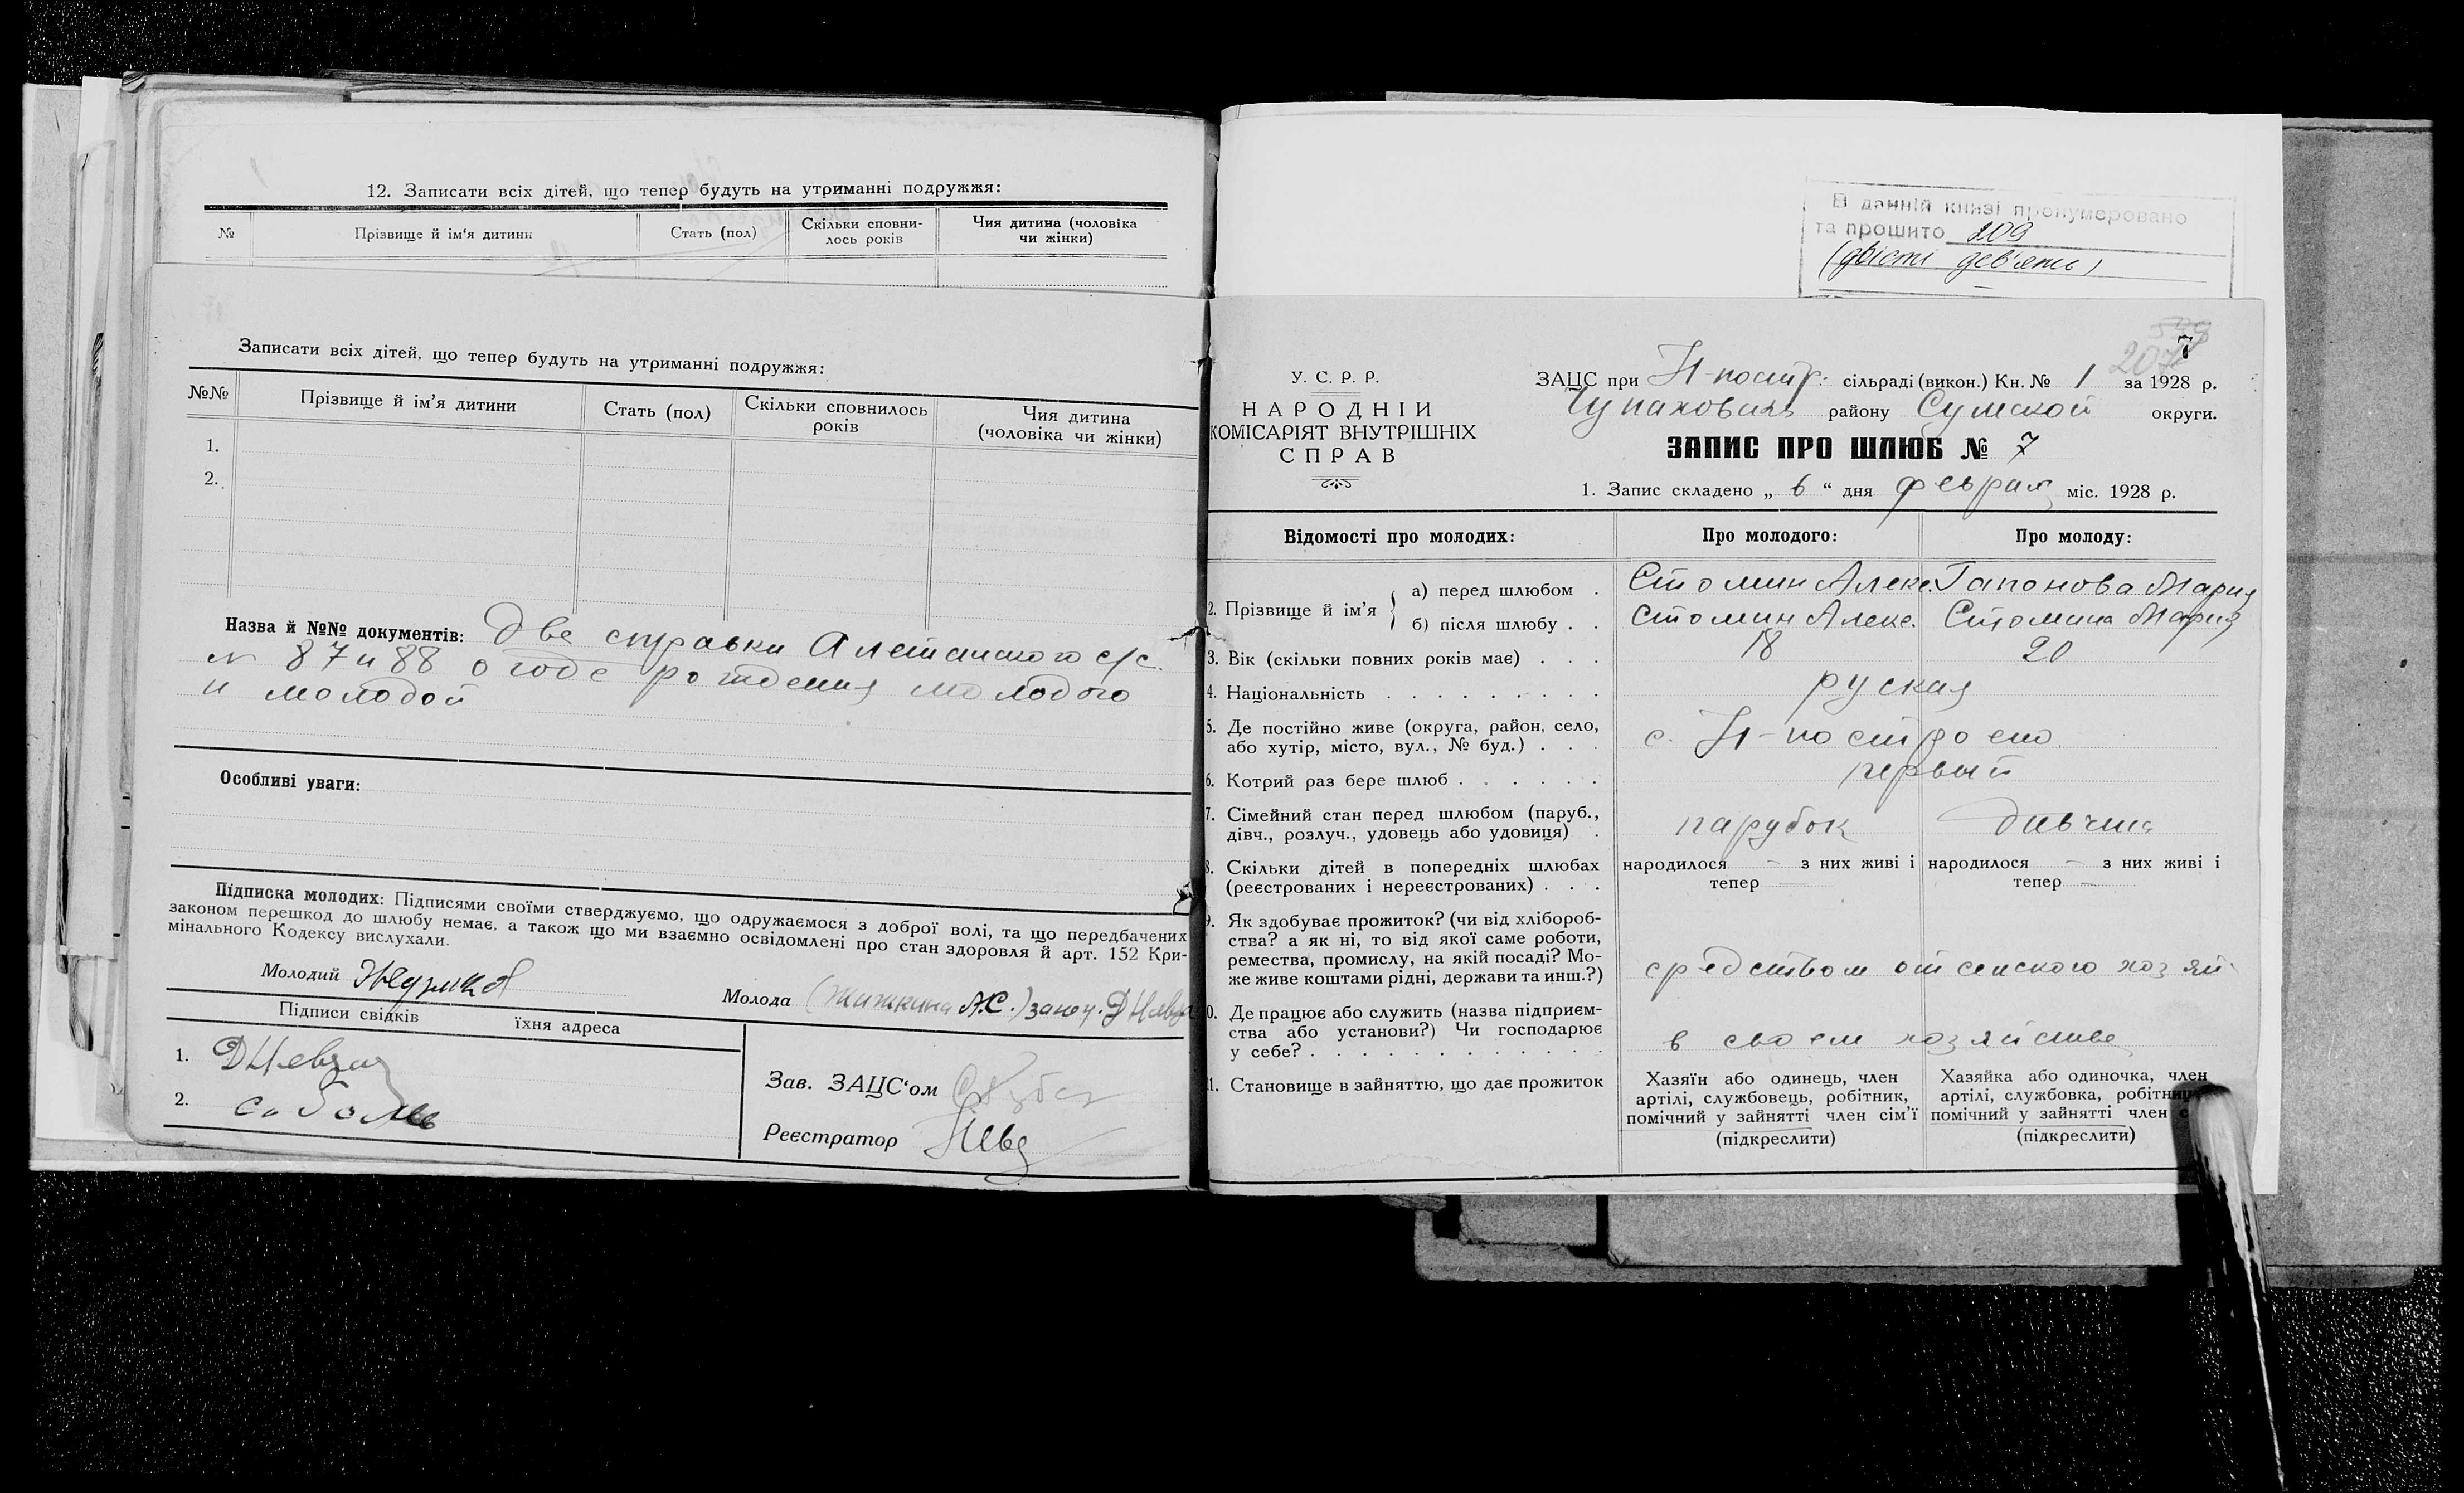 12. Записати всіх дітей, що тепер будуть на утриманні подружжя:
№ Прізвище й ім'я дитини Стать (пол) Скільки сповни-лось років Чия дитина (чоловіка чи жінки)
Записати всіх дітей, що тепер будуть на утриманні подружжя:
№№ Прізвище й ім'я дитини Стать (пол) Скільки сповнилось років Чия дитина (чоловіка чи жінки)
1.
2.
Назва й №№ документів: Две справки с/с.
№ 87 и 88 о годе рождения молодого
и молодой
Особливі уваги:
Підписка молодих: Підписями своїми стверджуємо, що одружаємося з доброї волі, та що передбачених
законом перешкод до шлюбу немає, а також що ми взаємно освідомлені про стан здоровля й арт. 152 Кри-
мінального Кодексу вислухали.
Молодий
Молода
Підписи свідків їхня адреса
1.
2. Соболь
Зав. ЗАЦС'ом
Реєстратор
В данній книзі пронумеровано
та прошито 209
(двісті дев'ять)
207
7
У. С. Р. Р.
НАРОДНІЙ
КОМІСАРІЯТ ВНУТРІШНІХ
СПРАВ
ЗАЦС при Н-постр. сільраді (викон.) Кн. № 1 за 1928 р.
району Сумской округи.
ЗАПИС ПРО ШЛЮБ № 7
1. Запис складено „ 6 “ дня феврал міс. 1928 р.
Відомості про молодих: Про молодого: Про молоду:
2. Прізвище й ім'я
а) перед шлюбом . Стомин Алекс. Гапонова Мария
б) після шлюбу . . Стомин Алекс. Стомина Мария
3. Вік (скільки повних років має) . . . 18 20
4. Національність . . . . . . . . . руская
5. Де постійно живе (округа, район, село,
або хутір, місто, вул., № буд.) . . . с. Н-построено
6. Котрий раз бере шлюб . . . . . . первый
7. Сімейний стан перед шлюбом (паруб.,
дівч., розлуч., удовець або удовиця) . парубок дивчина
8. Скільки дітей в попередніх шлюбах
(реєстрованих і нереєстрованих) . . .
народилося – з них живі і
тепер —
народилося – з них живі і
тепер –
9. Як здобуває прожиток? (чи від хлібороб-
ства? а як ні, то від якої саме роботи,
ремества, промислу, на якій посаді? Мо-
же живе коштами рідні, держави та инш.?)
средством от сельского хозяй
10. Де працює або служить (назва підприєм-
ства або установи?) Чи господарює
у себе? . . . . . . . . . . . .
в своем хозяйстве
11. Становище в зайняттю, що дає прожиток
Хазяїн або одинець, член
артілі, службовець, робітник,
помічний у зайнятті член сім'ї
(підкреслити)
Хазяйка або одиночка, член
артілі, службовка,
помічний у зайнятті член
(підкреслити)